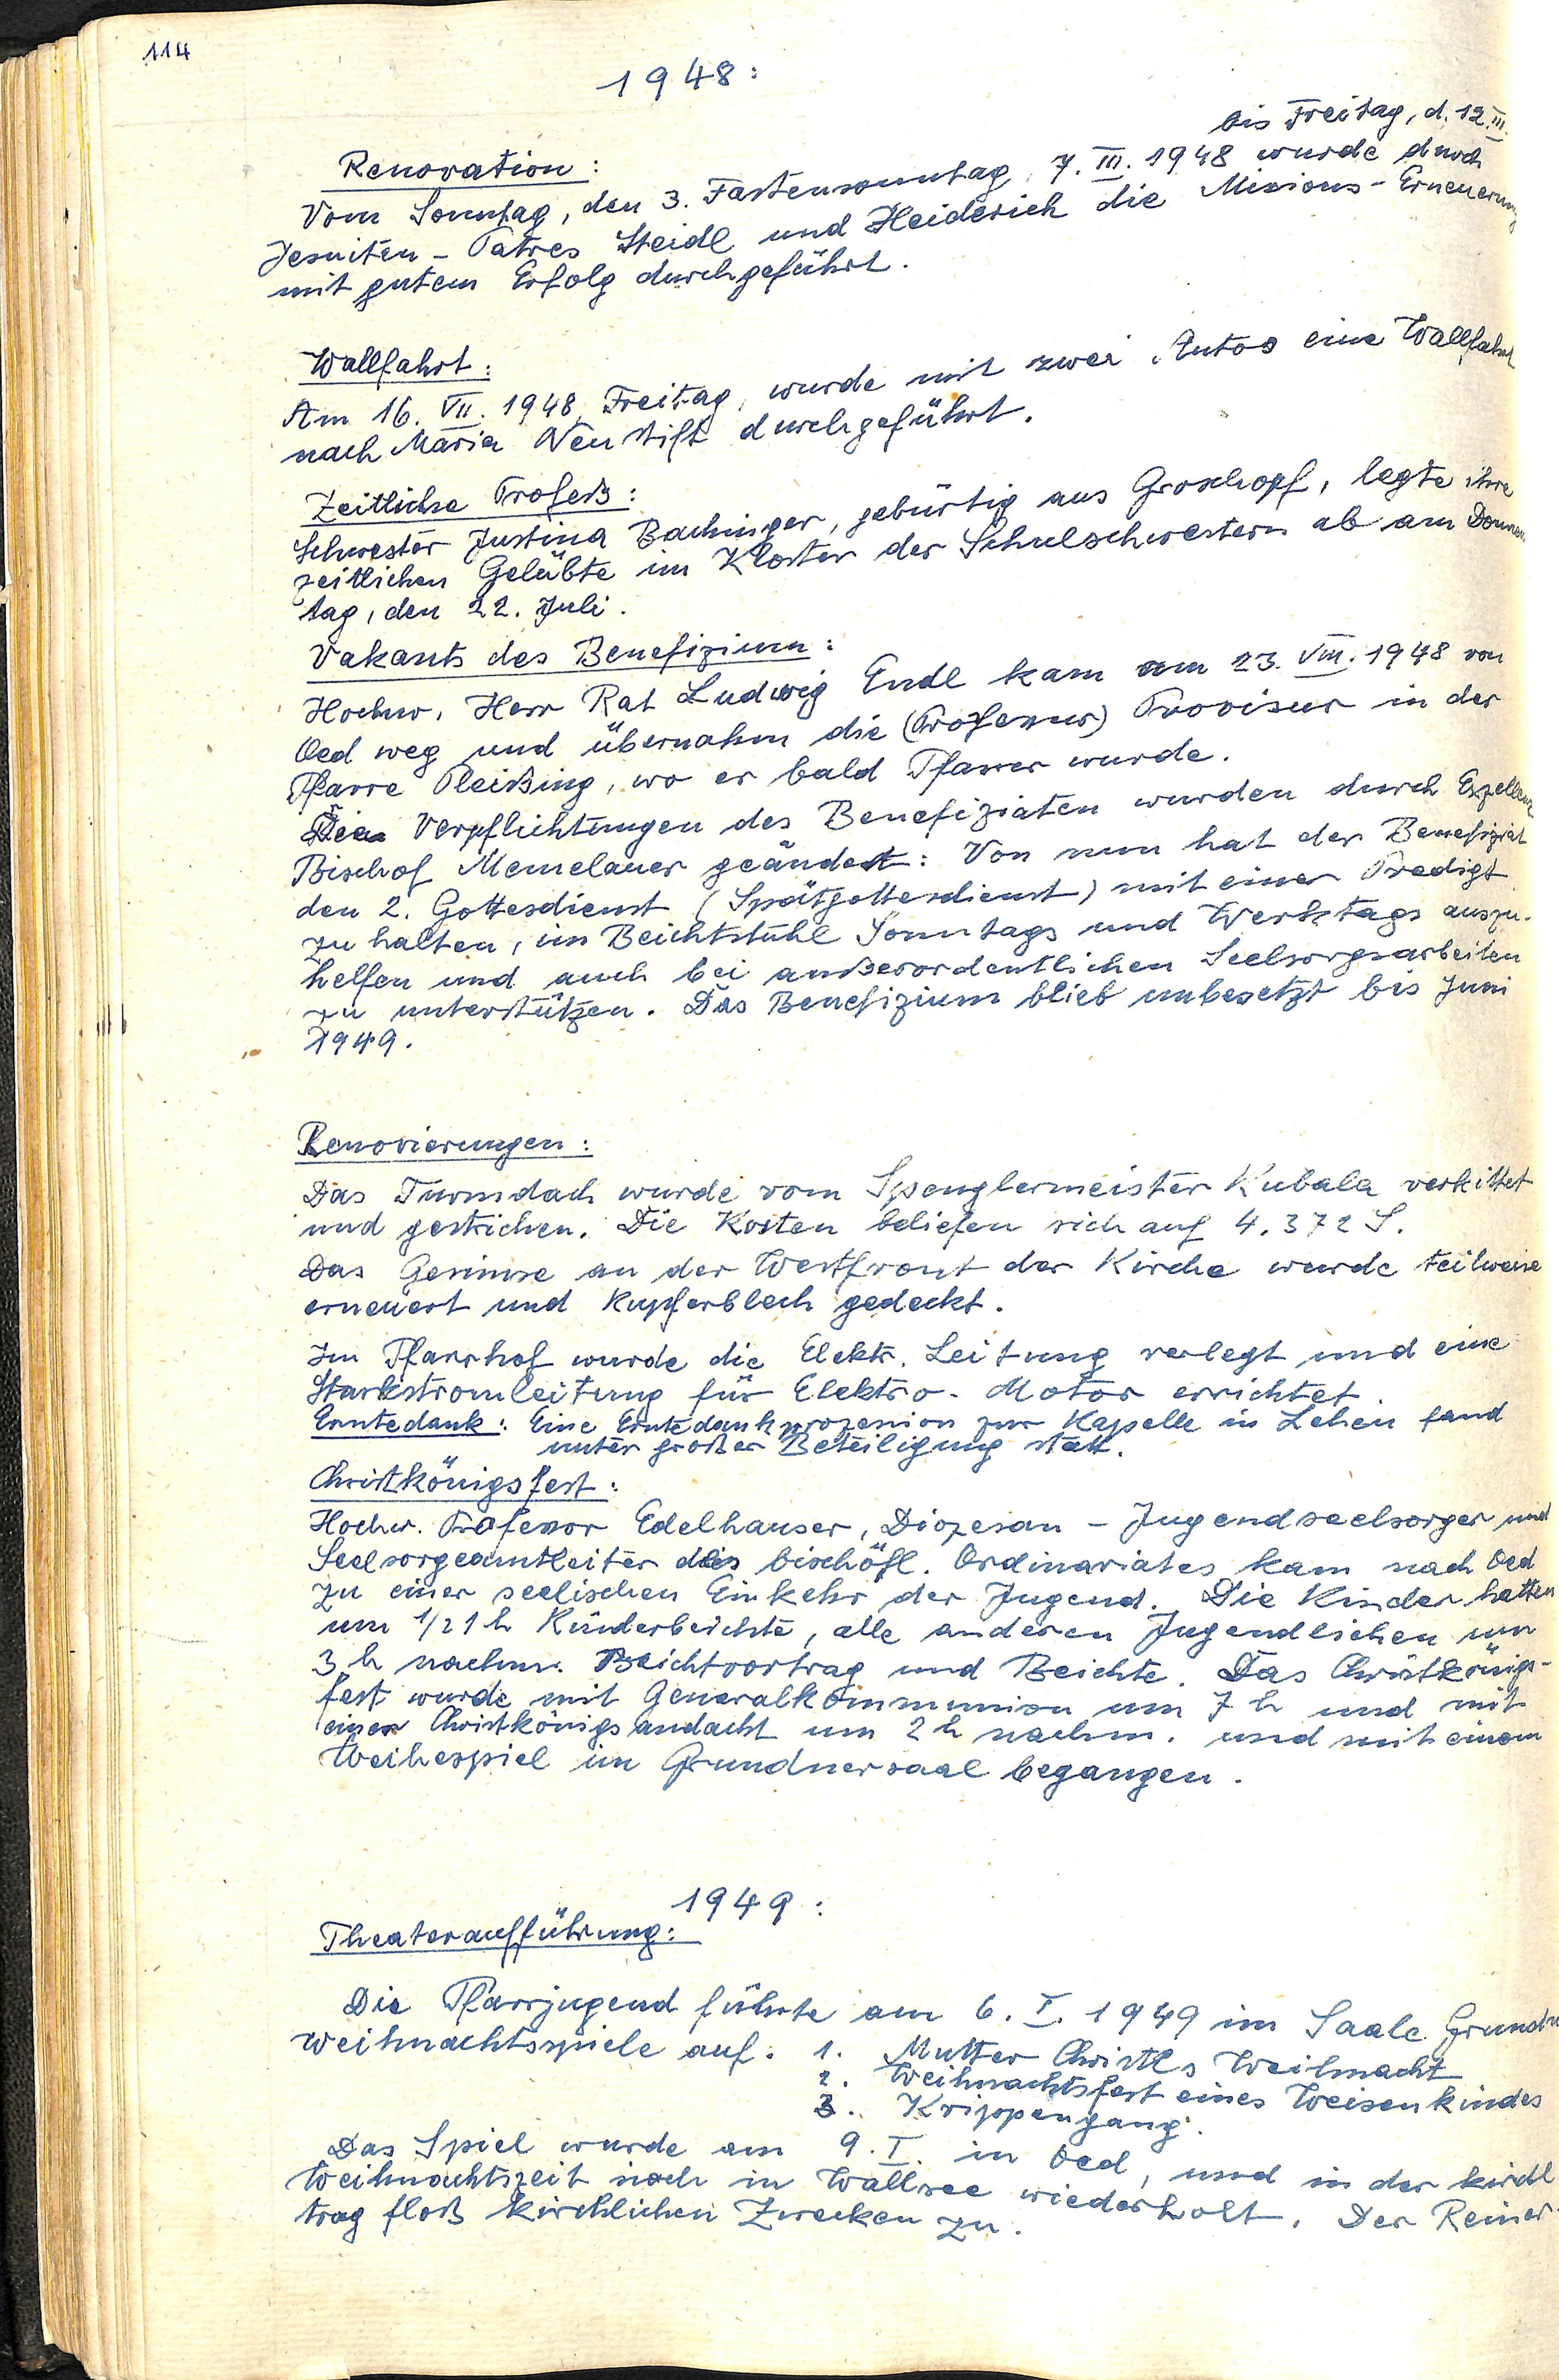 114
1948:
bis Freitag, d. 12. III.
Renovation:
Vom Sonntag, den 3. Fastensonntag, 7. III. 1948 wurde durch
Jesuiten-Patres Steidl und Heiderich die Missions-Erneuerung
mit gutem Erfolg durchgeführt.
Wallfahrt:
Am 16. VII. 1948, Freitag, wurde mit zwei Autos eine Wallfahrt
nach Maria Neustift durchgeführt.
Zeitliche Profeß:
Schwester Justina Bachinger, gebürtig aus Groschopf, legte ihre
zeitlichen Gelübte im Kloster der Schulschwestern ab am Donners
tag, den 22. Juli.
Vakants des Benefizium:
Hochw. Herr Rat Ludwig Endl kam am 23. VIII. 1948 von
Oed weg und übernahm die (Professur) Provisur in der
Pfarre Pleißing, wo er bald Pfarrer wurde.
Die Verpflichtungen des Benefiziaten wurden durch Exzellenz
Bischof Memelauer geändert: Von nun hat der Benefiziat
den 2. Gottesdienst (Spätgottesdienst) mit einer Predigt
zu halten, im Beichtstuhl Sonntags und Werktags auszu-
helfen und auch bei außerordentlichen Seelsorgsarbeiten
zu unterstützen. Das Benefizium blieb unbesetzt bis Juni
1949.
Renovierungen:
Das Turmdach wurde vom Spenglermeister Kubala verkittet
und gestrichen. Die Kosten beliefen sich auf 4.372 S.
Das Gesimse an der Westfront der Kirche wurde teilweise
erneuert und Kupferblech gedeckt.
Im Pfarrhof wurde die Elektr. Leitung verlegt und eine
Starkstromleitung für Elektro-Motor errichtet.
Erntedank: Eine Erntedankprozession zur Kapelle in Lehen fand
unter großer Beteiligung statt.
Christkönigsfest:
Hochw. Professor Edelhauser, Diözesan-Jugendseelsorger und
Seelsorgeamtleiter des bischöfl. Ordinariates kam nach Oed
zu einer seelischen Einkehr der Jugend. Die Kinder hatten
um 1/2 1 h Kinderbeichte, alle anderen Jugendlichen um
3 h nachm. Beichtvortrag und Beichte. Das Christkönigs-
fest wurde mit Generalkommunion um 7 h und mit
einer Christkönigsandacht um 2 h nachm. und mit einem
Weihespiel im Grundnersaal begangen.
1949:
Theateraufführung:
Die Pfarrjugend führte am 6. I. 1949 im Saale Grundn
Weihnachtsspiele auf: 1. Mutter Christls Weihnacht
2. Weihnachtsfest eines Weisenkindes
3. Krippengang.
Das Spiel wurde am 9. I. in Oed, und in der kirchl
Weihnachtszeit noch in Wallsee wiederholt. Der Reiner-
trag floß kirchlichen Zwecken zu.